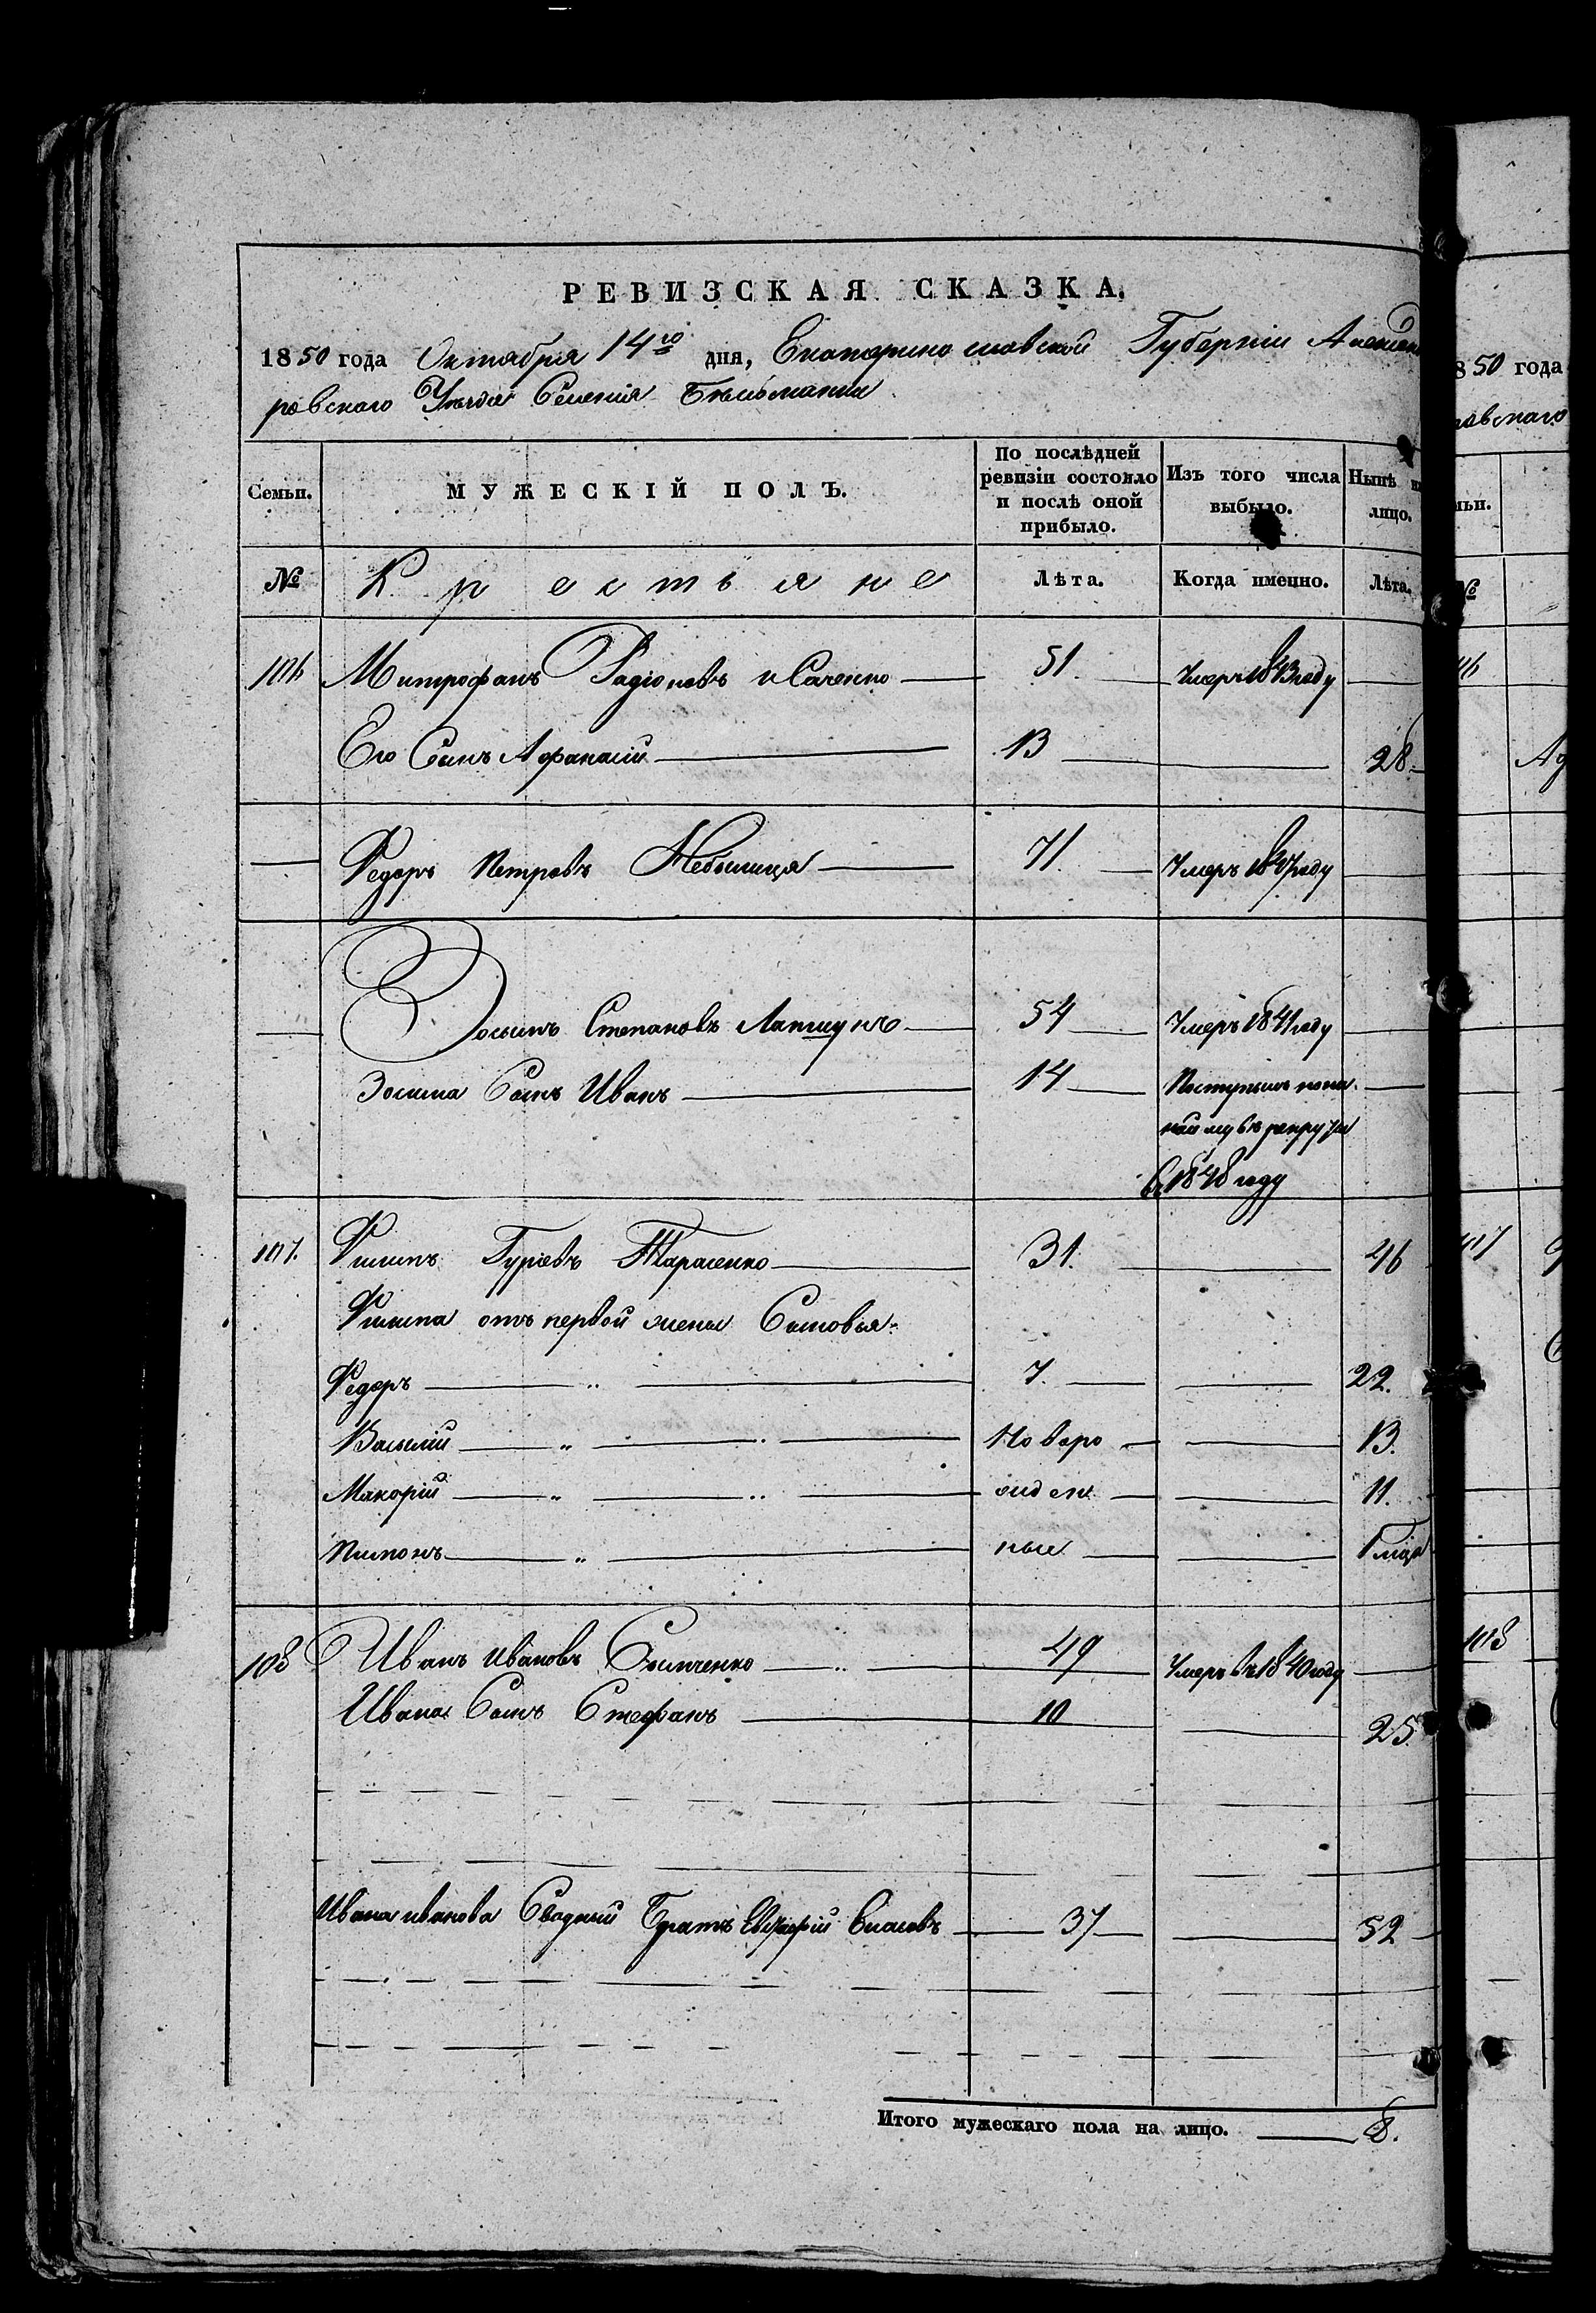 РЕВИЗСКАЯ СКАЗКА.
1850 года Октября 14го дня, Екатерино славской Губернии Александ
ровскаго Уѣзда Селенія Бѣльманки
Семьи. МУЖЕСКІЙ ПОЛЪ. По послѣдней ревизіи состояло и послѣ оной прибыло. Изъ того числа выбыло. Нынѣ на лицо.
№ Крестьяне Лѣта. Когда именно. Лѣта.
106 Митрофанъ Радіоновъ исаченко 51. Умеръ 1843 году
Его Сынъ Афанасій 13 28
Федоръ Петровъ Небылица 71. Умеръ 1847 году
Зосимъ Степановъ Лапшунъ 54 Умеръ 1841 году
Зосима Сынъ Иванъ 14 Поступилъ
въ рекруты
въ 1848 году
107. Филипъ Гуріевъ Тарасенко 31. 46
Филипа отъ первой жены Сыновья:
Федоръ 7 22.
Василій Ново ро 13.
Макорій жден 11.
Пимонъ ные 1 мца
108 Иванъ Ивановъ 49 Умеръ въ 1840 году
Ивана Сынъ Стефанъ 10 25.
Ивана иванова Сводный Братъ Власовъ 37 52
Итого мужескаго пола на лицо. 8.
850 года
овскаго
ьи.
№
06
107
108